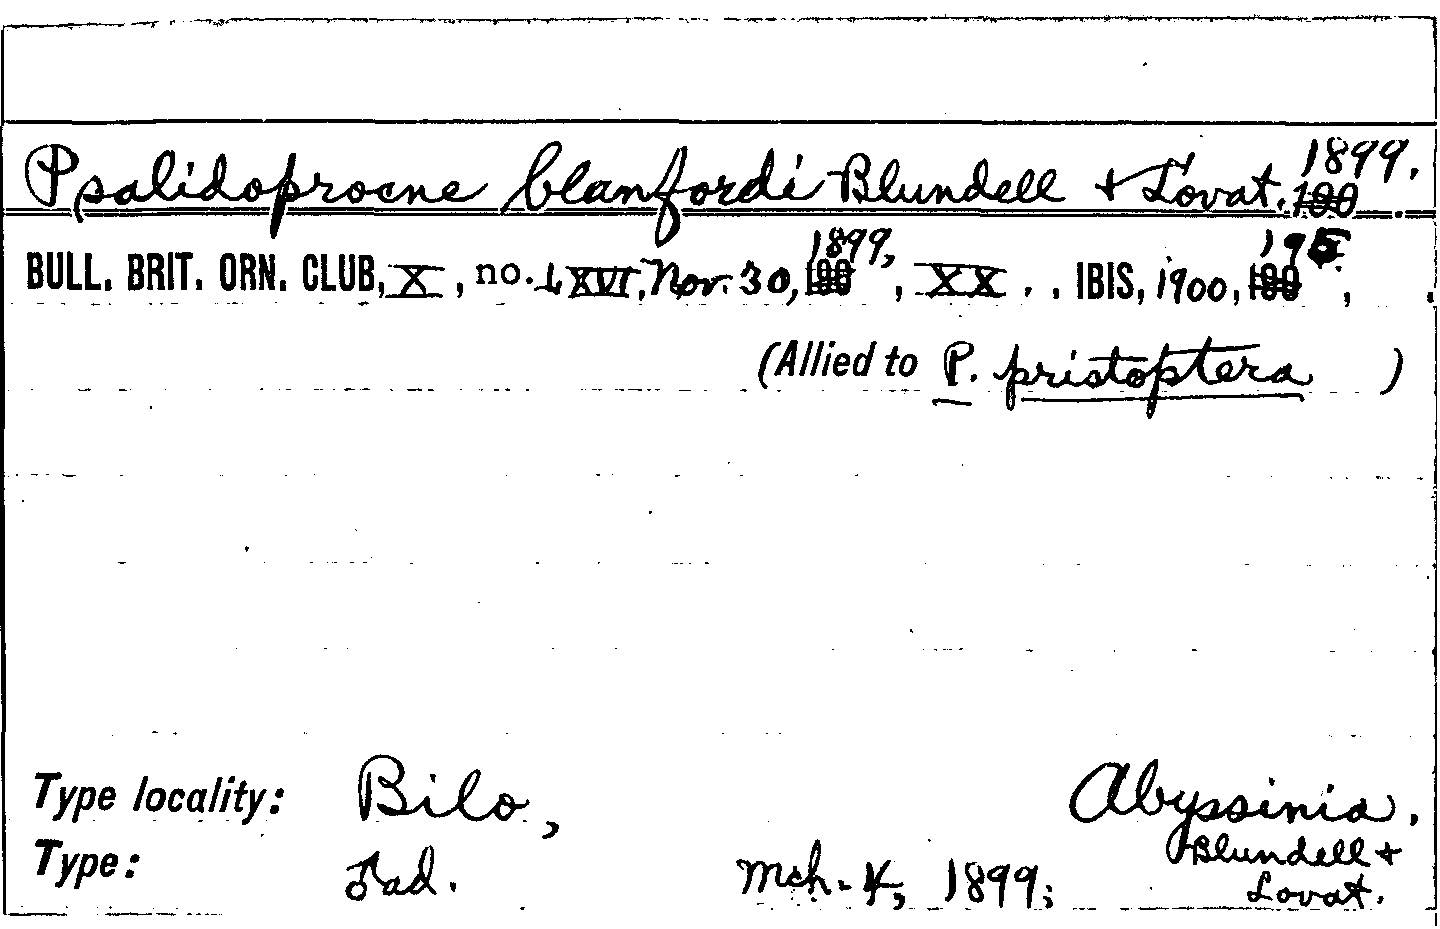 Psalidoprocne blanfordi Blundell & Lovat. 1899.
BULL. BRIT. ORN. CLUB, X, no. LXVI, Nov. 30, 1899, XX. IBIS, 1900, 195.
(Allied to P. pristoptera )
Type locality: Bilo, Abyssinia.
Type: ♂ ad. Mch. 4, 1899; Blundell &
Lovat.